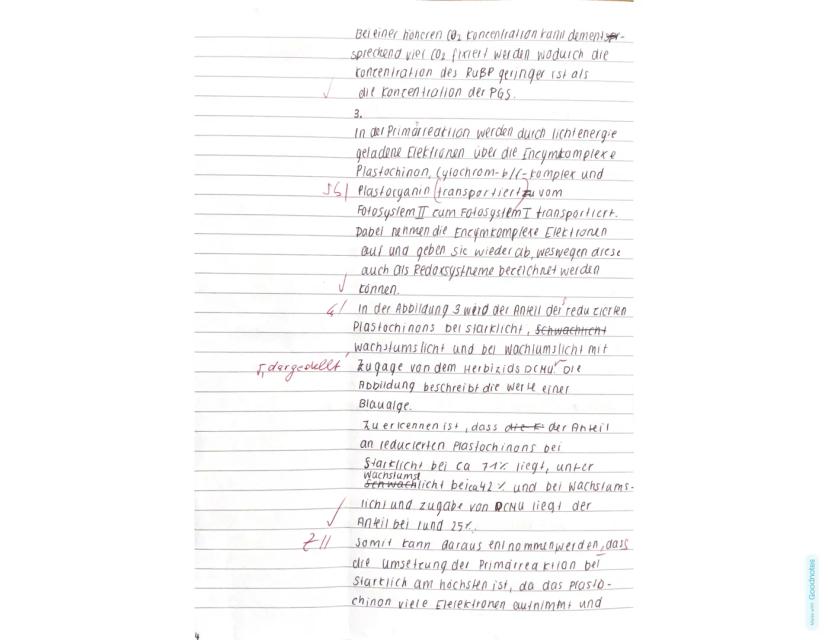 Bei einer höheren CO2 Koncentration kann dement-
sprechend viel CO2 fixiert werden wodurch die
Koncentration des RuBP geringer ist als
die Koncentration der PGS.
3.
In der Primärreaktion werden durch lichtenergie
geladene Elektronen über die Encymkomplexe
Plastochinon, Cytochrom-b/f-Komplex und
Sb| Plastocyanin (transportiert) zu vom
Fotosystem II cum Fotosystem I transportiert.
Dabei nehmen die Encymkomplexe Elektronen
auf und geben sie wieder ab, weswegen diese
auch als Redoxsysteme bezeichnet werden
können.
G/ In der Abbildung 3 wird der Anteil der reduzierten
Plastochinons bei starklicht, Schwachlicht
Wachstumslicht und bei Wachtumslicht mit
, dargestellt Zugage van dem Herbizids DCMU. Die
Abbildung beschreibt die Werte einer
Blaualge.
Zu erkennen ist, dass die E der Anteil
an reducierten Plastochinons bei
Starklicht bei ca 71% liegt, unter
Wachstums
Schwachlicht bei ca 42 % und bei Wachstums-
licht und zugabe von DCMU liegt der
Anteil bei rund 25%.
Z// Somit kann daraus entnommen werden, dass
die Umsetzung der Primärreaktion bei
Starklich am höchsten ist, da das Plasto-
chinon viele Elelektronen aufnimmt und
4
Made with Goodnotes